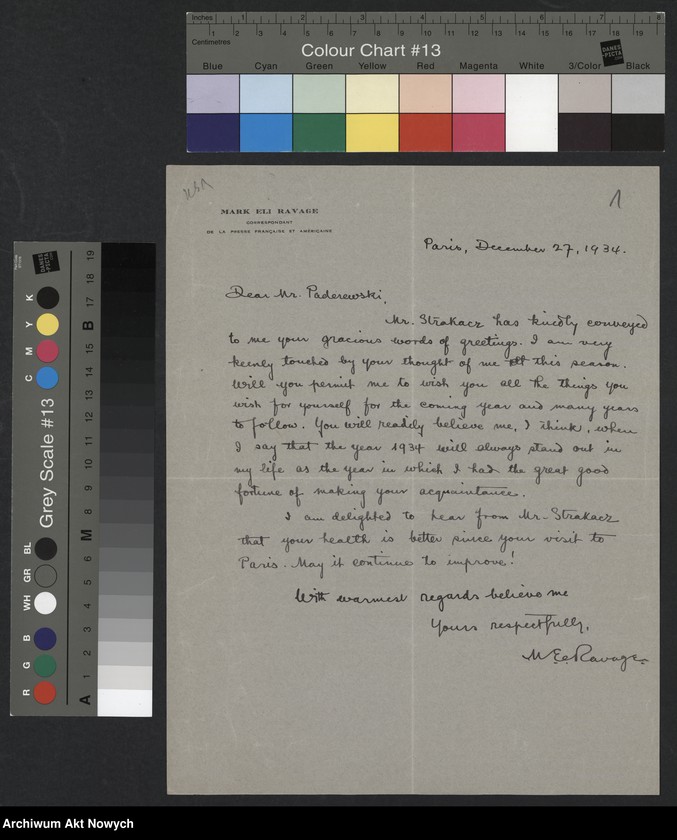 Inches 1 2 3 4 5 6 7 8
Centimetres 1 2 3 4 5 6 7 8 9 10 11 12 13 14 15 16 17 18 19
Colour Chart #13
DANES-PICTA
Blue Cyan Green Yellow Red Magenta White 3/Color Black
Grey Scale #13
R G B WH GR BL C M Y K
A 1 2 3 4 5 6 M 8 9 10 11 12 13 14 15 B 17 18 19
DANES-PICTA
USA
1
MARK ELI RAVAGE
CORRESPONDANT
DE LA PRESSE FRANÇAISE ET AMÉRICAINE
Paris, December 27, 1934.
Dear Mr. Paderewski,
Mr. Strakacz has kindly conveyed
to me your gracious words of greetings. I am very
keenly touched by your thought of me this season.
Will you permit me to wish you all the things you
wish for yourself for the coming year and many years
to follow. You will readily believe me, I think, when
I say that the year 1934 will always stand out in
my life as the year in which I had the great good
fortune of making your acquaintance.
I am delighted to hear from Mr. Strakacz
that your health is better since your visit to
Paris. May it continue to improve!
With warmest regards believe me
Yours respectfully,
M. E. Ravage
Archiwum Akt Nowych